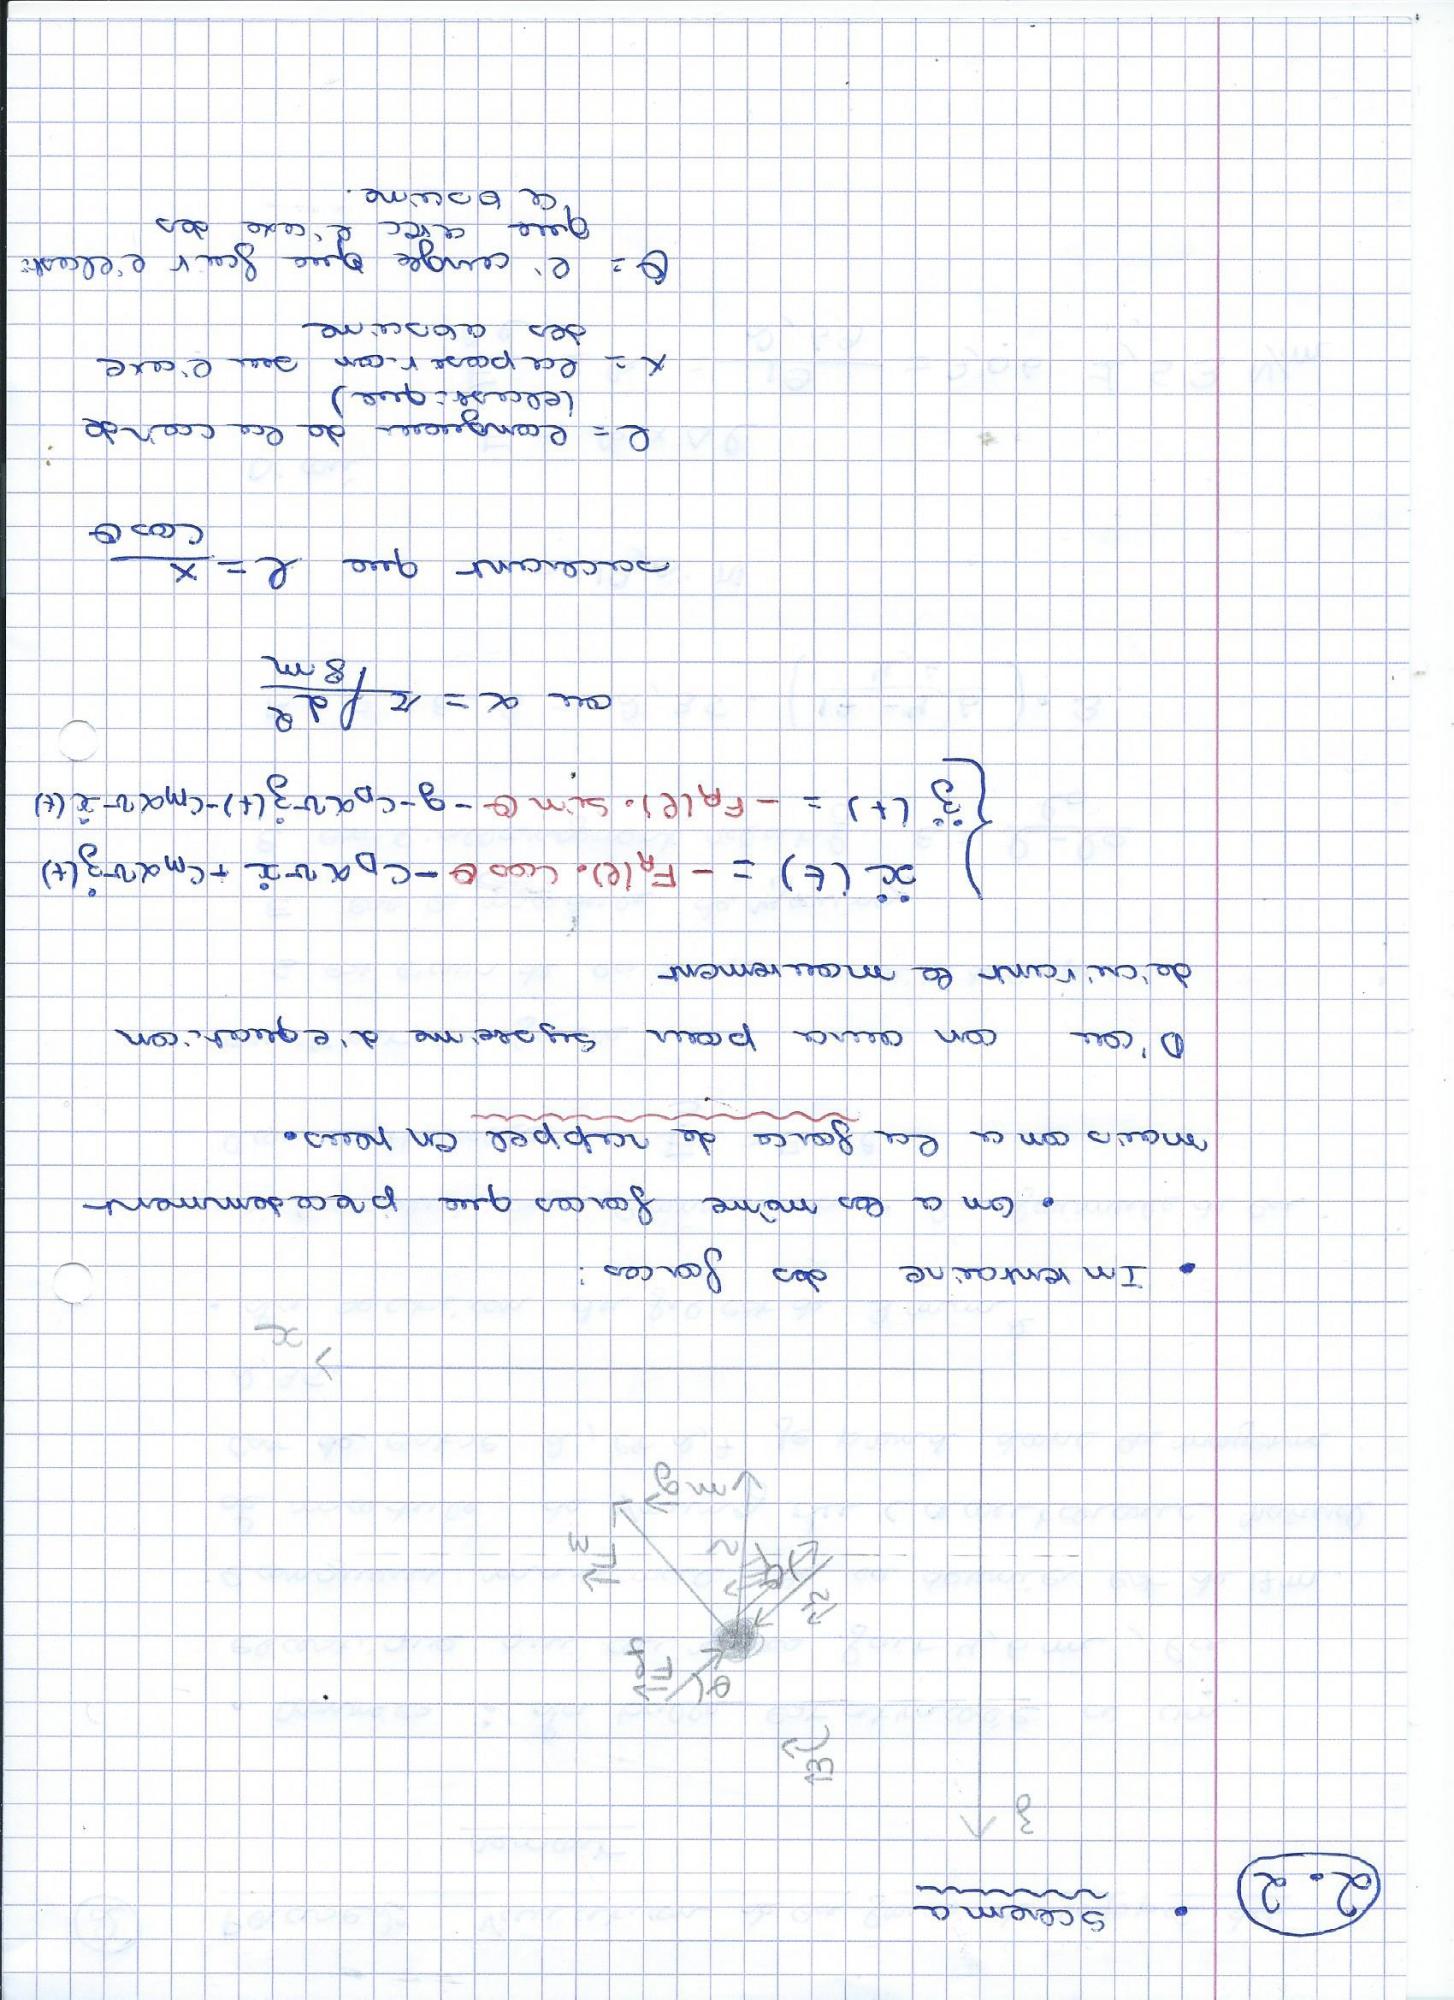 2.2
• Scema
z
B
θ
Ff
v
α
Fm
mg
x
• Inventaire des forces :
• On a les même forces que précedemment
mais on a la force de rappel en plus.
D'ou on aura pour système d'equation
décrivant le mouvement
{ ẍ(t) = - F_R(l). cos θ - C_D α v ẋ + C_m α v ż(t)
z̈(t) = - F_R(l). sin θ - g - C_D α v ż(t) - C_m α v ẋ(t)
ou α = π ρ d² / 8m
sachant que l = x / cos θ
l = longueur de la corde
(elastique)
x = la position sur l'axe
des abscisse
θ = l'angle que fait l'elasti-
que avec l'axe des
abscisse.